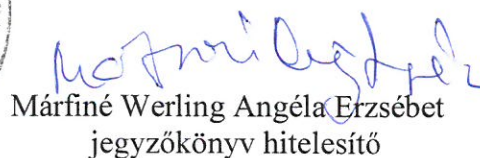 Márfiné Werling Angéla Erzsébet
jegyzőkönyv hitelesítő